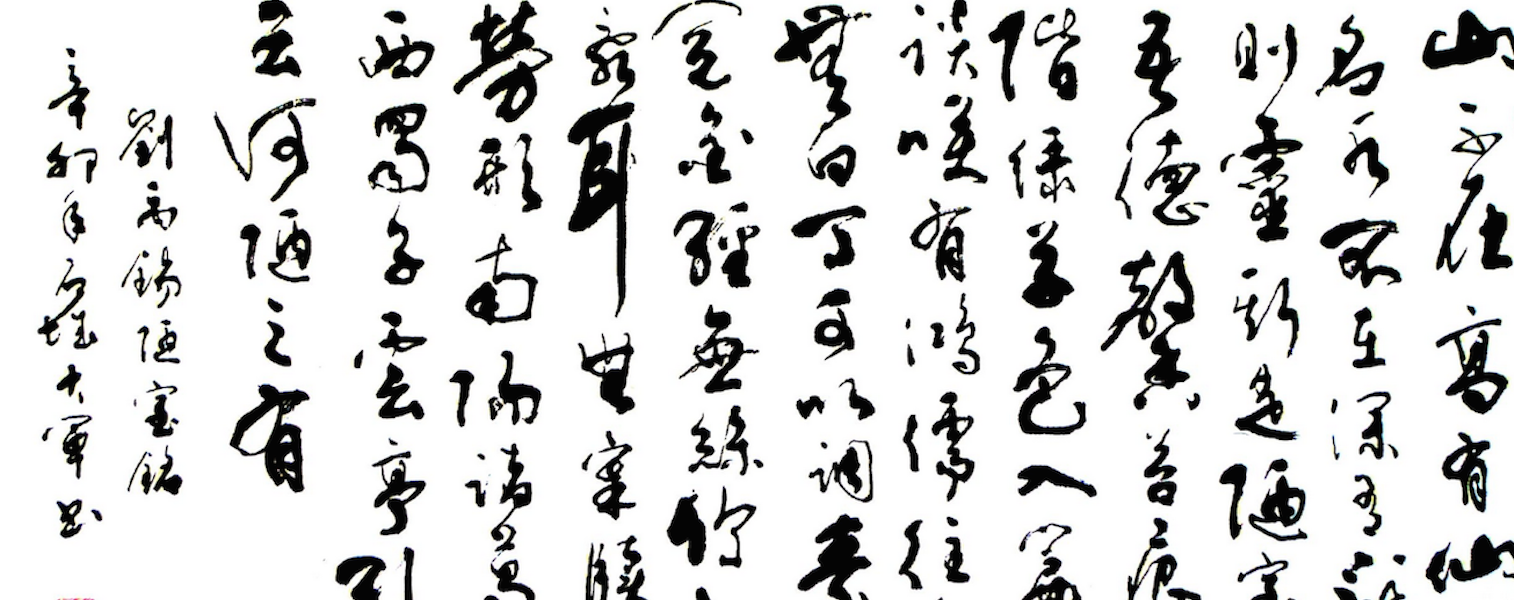 山不在高有仙
名水不在深有龍
則靈斯是陋室
吾德馨苔痕
階綠草色入簾
談笑有鴻儒往
無白丁可以調素
閱金經無絲竹
亂耳無案牘
勞形南陽諸葛
西蜀子雲亭孔
云何陋之有
劉禹錫陋室銘
辛卯年大軍书